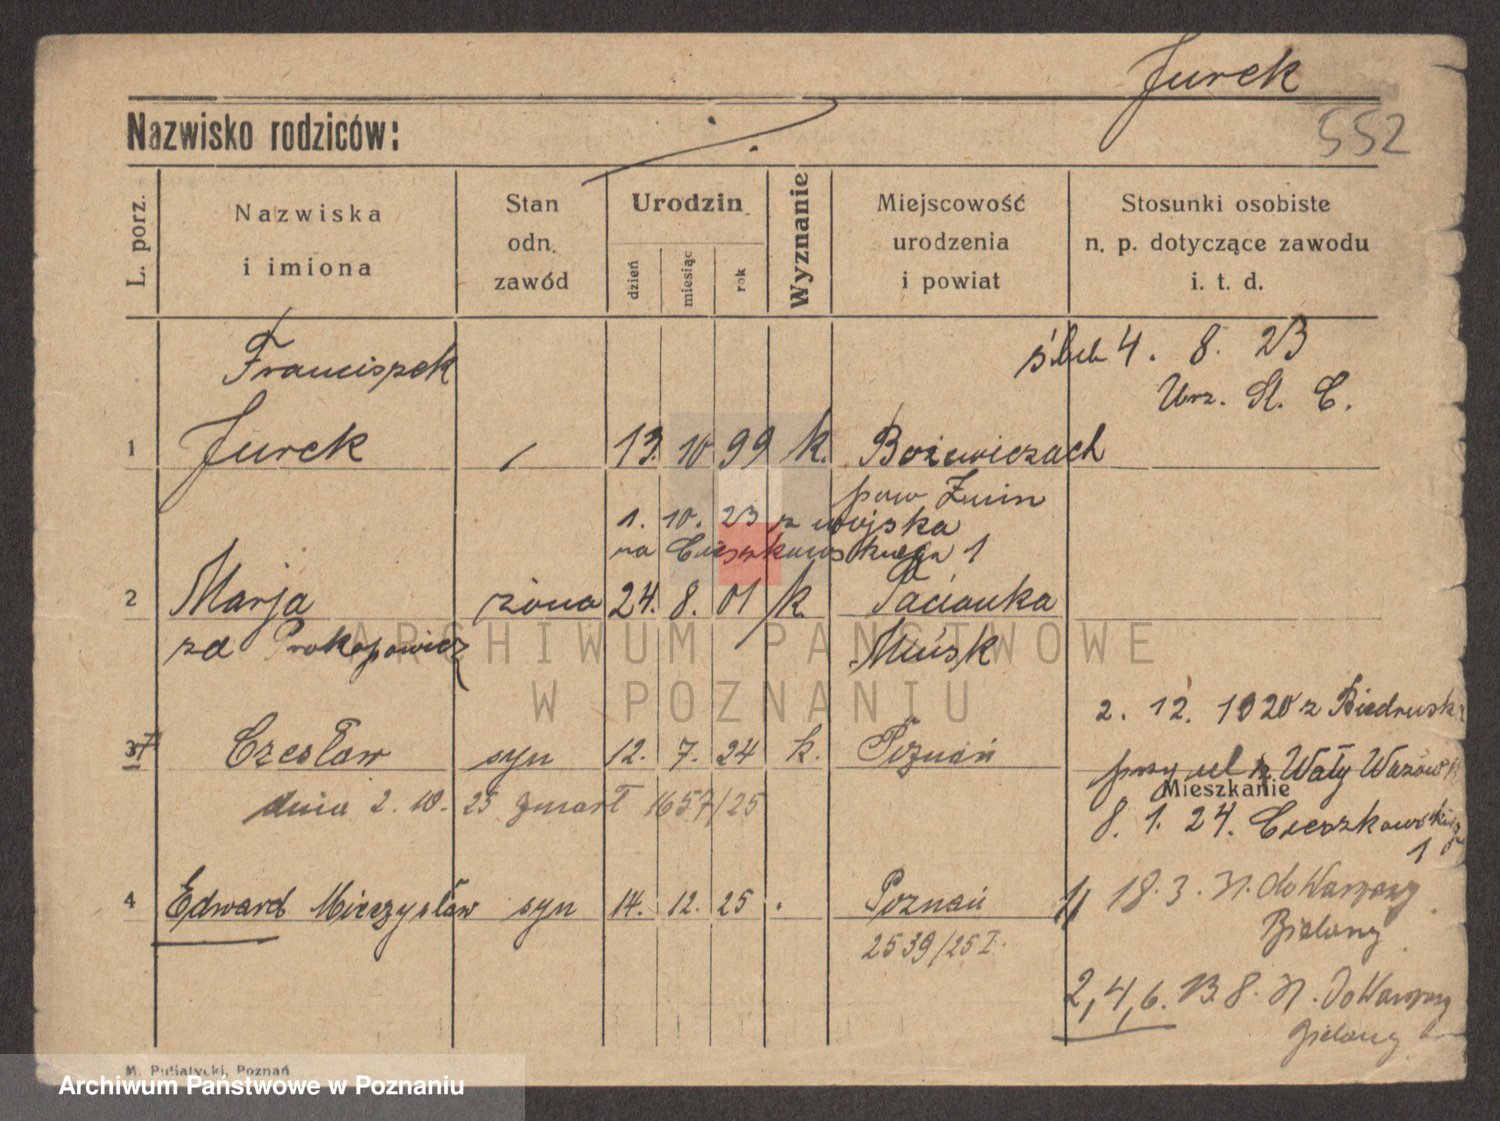 Jurek
552
Nazwisko rodziców:
L. porz.
Nazwiska
i imiona
Stan
odn.
zawód
Urodzin
dzień
miesiąc
rok
Wyznanie
Miejscowość
urodzenia
i powiat
Stosunki osobiste
n. p. dotyczące zawodu
i. t. d.
Franciszek
ślub 4. 8. 23
Urz. St. C.
1 Jurek 13. 10 99 k. Bożewiczach
pow Żnin
1. 10. 23 z wojska
na Cieszkowskiego 1
2 Marja żona 24. 8. 01 k.
zd Prokopowicz Mińsk
2. 12. 1920 z Biedruska
3 Czesław syn 12. 7. 24 k. Poznań
przy ul Wały Wazów
Mieszkanie
dnia 2. 10. 25 zmarł 1657/25
8. 1. 24. Cieszkowskiego
1
4 Edward Mieczysław syn 14. 12. 25 Poznań
2539/25 I.
1) 18. 3.
Bielany
2, 4, 6.
Bielany
M. Putiatycki, Poznań
ARCHIWUM PAŃSTWOWE
W POZNANIU
Archiwum Państwowe w Poznaniu